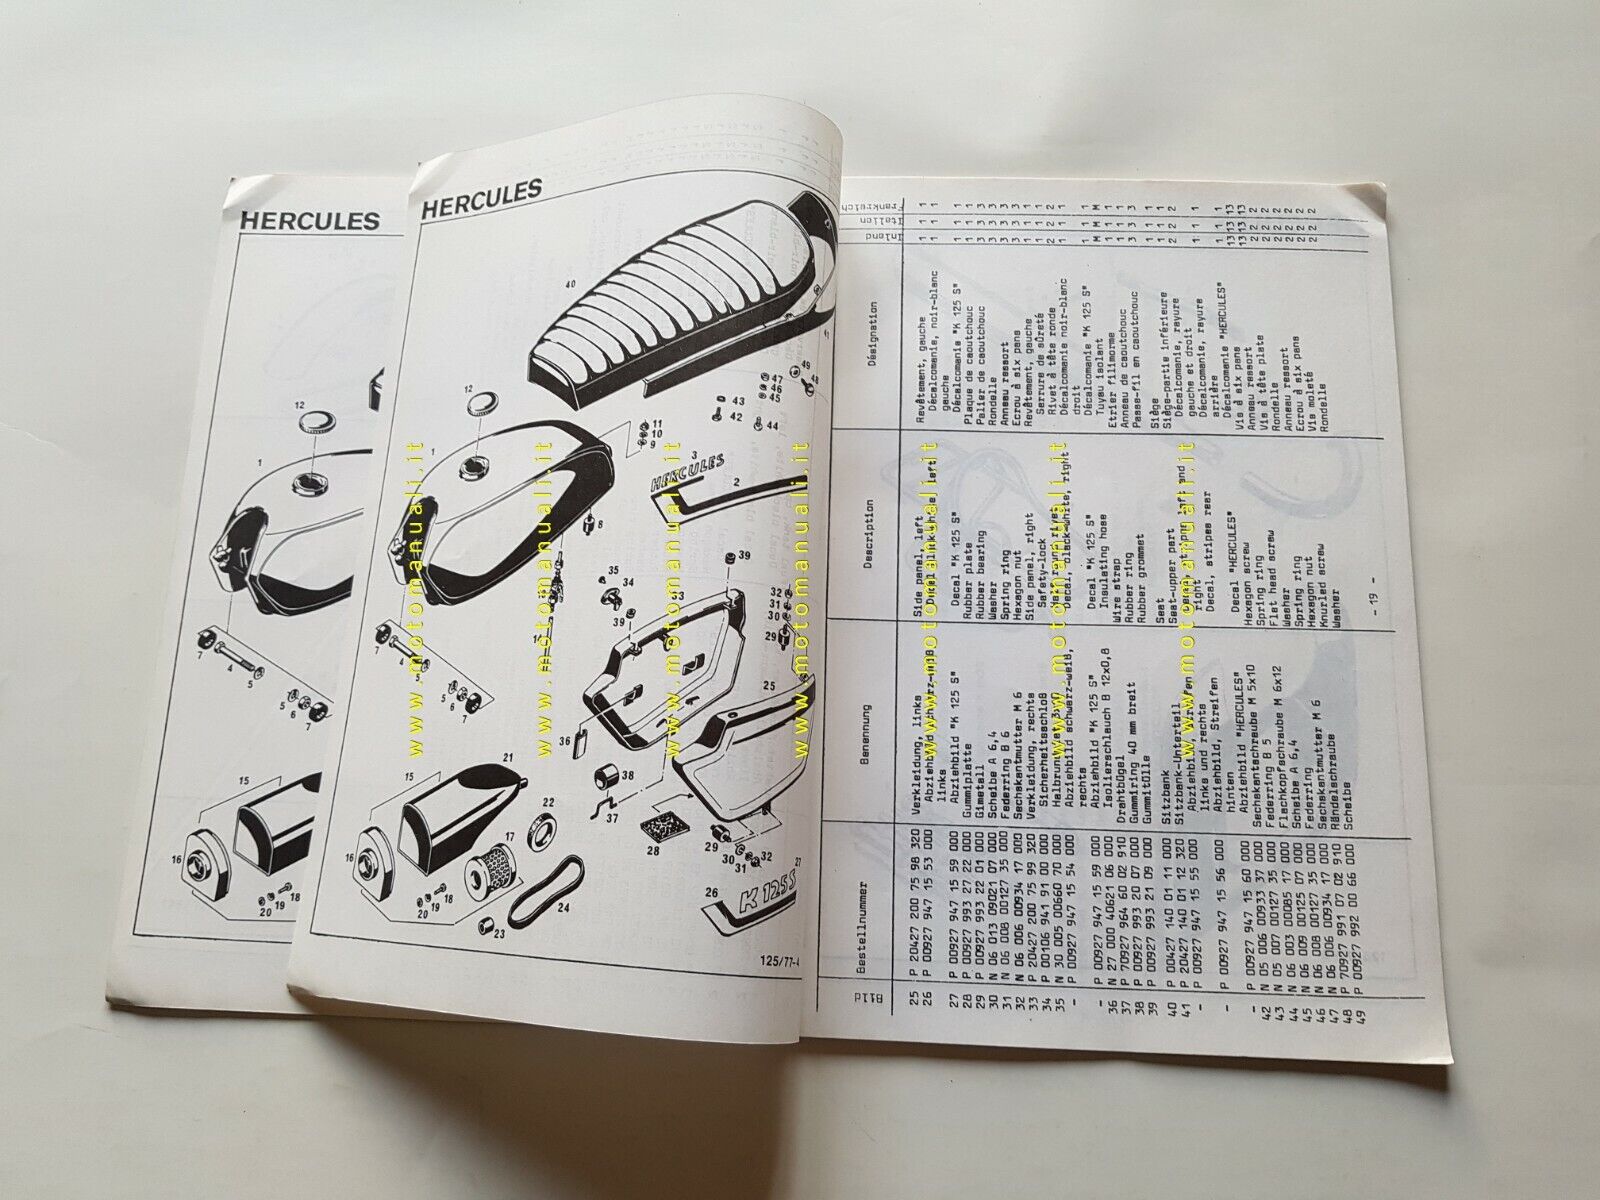 HERCULES
12
1
7
4
5
5
6
7
15
16
20
19
18
HERCULES
40
12
1
11
10
9
8
3
HERCULES
2
49
48
47
46
45
43
42
44
39
35
34
39
32
31
30
29
25
7
4
5
6
7
36
38
37
28
29
30
31
32
26
27
K 125 S
15
21
22
17
16
20
19
18
23
24
125/77-4
Bild Bestellnummer Benennung Description Désignation Inland Italien Frankreich
25 P 20427 200 75 98 320 Verkleidung, links Side panel, left Revêtement, gauche 1 1 1
26 P 00927 947 15 53 000 links left Décalcomanie, noir-blanc gauche 1 1 1
27 P 00927 947 15 59 000 Abziehbild "K 125 S" Decal "K 125 S" Décalcomanie "K 125 S" 1 1 1
28 P 00927 993 27 22 000 Gummiplatte Rubber plate Plaque de caoutchouc 1 1 1
29 P 00927 993 22 01 000 Gimetall Rubber bearing Palier de caoutchouc 3 3 3
30 N 06 013 09021 07 000 Scheibe A 6,4 Washer Rondelle 3 3 3
31 N 06 008 00127 35 000 Federring B 6 Spring ring Anneau ressort 3 3 3
32 N 06 006 00934 17 000 Sechskantmutter M 6 Hexagon nut Ecrou à six pans 3 3 3
33 P 20427 200 75 99 320 Verkleidung, rechts Side panel, right Revêtement, gauche 1 1 1
34 P 00106 941 91 00 000 Sicherheitsschloß Safety-lock Serrure de sûreté 1 1 1
35 N 30 005 00660 70 000 Rivet à tête ronde 2 2 2
- P 00927 947 15 54 000 Abziehbild schwarz-weiß, rechts Decal, black-white, right Décalcomanie noir-blanc droit 1 1 1
- P 00927 947 15 59 000 Abziehbild "K 125 S" Decal "K 125 S" Décalcomanie "K 125 S" 1 1 1
36 N 27 000 40621 06 000 Isolierschlauch B 12x0,8 Insulating hose Tuyau isolant M M M
37 P 70927 964 60 02 910 Drahtbügel Wire strap Etrier filimorme 1 1 1
38 P 00927 993 20 07 000 Gummiring 40 mm breit Rubber ring Anneau de caoutchouc 1 1 1
39 P 00927 993 21 09 000 Gummitülle Rubber grommet Passe-fil en caoutchouc 3 3 3
40 P 00427 140 01 11 000 Sitzbank Seat Siège 1 1 1
41 P 20427 140 01 12 320 Sitzbank-Unterteil Seat-upper part Siège-partie inférieure 1 1 1
- P 00927 947 15 55 000 links und rechts right Décalcomanie, rayure gauche et droit 2 2 2
- P 00927 947 15 56 000 Abziehbild, Streifen hinten Decal, stripes rear Décalcomanie, rayure arrière 1 1 1
- P 00927 947 15 60 000 Abziehbild "HERCULES" Decal "HERCULES" Décalcomanie "HERCULES" 1 1 1
42 N 05 006 00933 37 000 Sechskantschraube M 5x10 Hexagon screw Vis à six pans 13 13 13
43 N 05 007 00127 35 000 Federring B 5 Spring ring Anneau ressort 13 13 13
44 N 06 003 00085 17 000 Flachkopfschraube M 6x12 Flat head screw Vis à tête plate 2 2 2
45 N 06 009 00125 07 000 Scheibe A 6,4 Washer Rondelle 2 2 2
46 N 06 008 00127 35 000 Federring Spring ring Anneau ressort 2 2 2
47 N 06 006 00934 17 000 Sechskantmutter M 6 Hexagon nut Ecrou à six pans 2 2 2
48 P 70927 991 07 02 910 Rändelschraube Knurled screw Vis moleté 2 2 2
49 P 00927 992 00 66 000 Scheibe Washer Rondelle 2 2 2
- 19 -
www.motomanuali.it
www.motomanuali.it
www.motomanuali.it
www.motomanuali.it
www.motomanuali.it
www.motomanuali.it
www.motomanuali.it